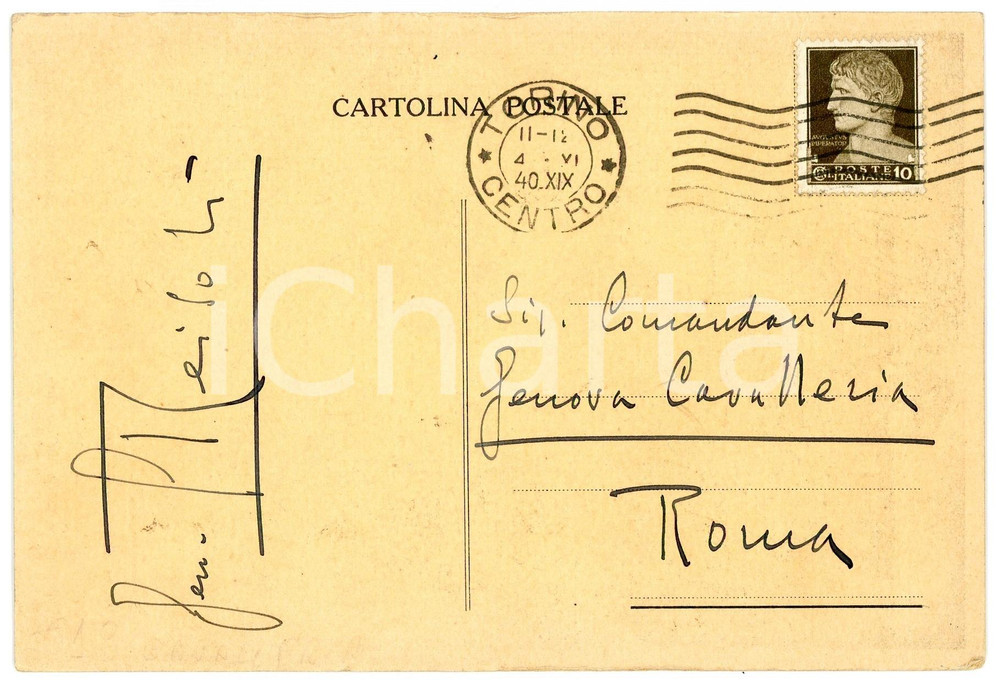 CARTOLINA POSTALE
TORINO
11-12
4 - XI
40.XIX
CENTRO
AVGVSTVS
IMPERATOR
POSTE
ITALIANE 10
Sig. Comandante
Genova Cavalleria
Roma
Gen.
iCharta